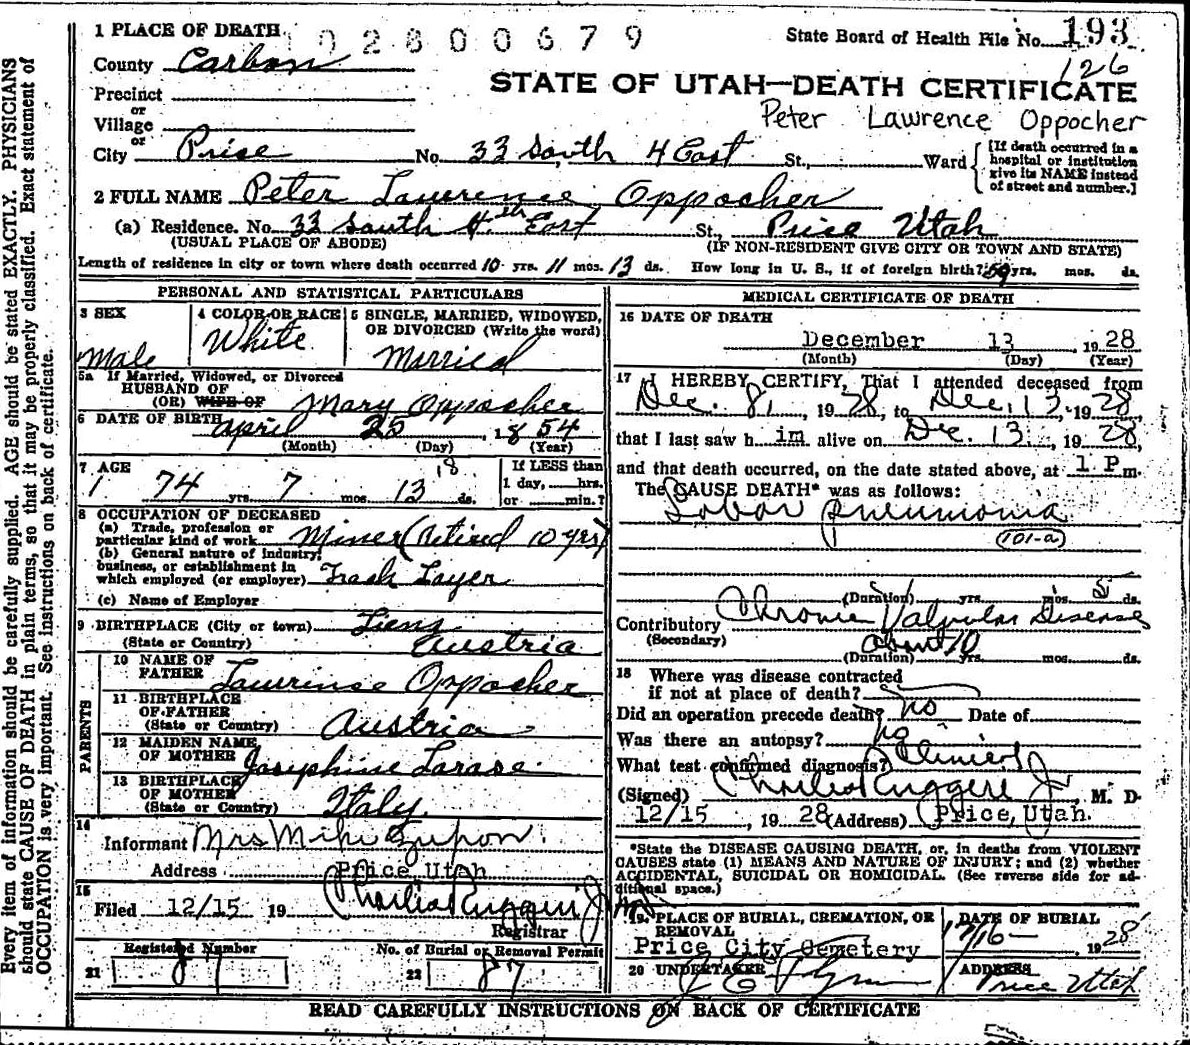 Every item of information should be carefully supplied. AGE should be stated EXACTLY. PHYSICIANS
should state CAUSE OF DEATH in plain terms, so that it may be properly classified. Exact statement of
OCCUPATION is very important. See instructions on back of certificate.
1 PLACE OF DEATH 02800679 State Board of Health File No. 193
126
County Carbon
STATE OF UTAH—DEATH CERTIFICATE
Precinct
or
Village
Peter Lawrence Oppocher
or
City Price No. 33 South 4 East St., Ward
[If death occurred in a
hospital or institution
give its NAME instead
of street and number.]
2 FULL NAME Peter Lawrence Oppocher
(a) Residence. No. 33 South 4th East St., Price Utah
(USUAL PLACE OF ABODE) (IF NON-RESIDENT GIVE CITY OR TOWN AND STATE)
Length of residence in city or town where death occurred 10 yrs. 11 mos. 13 ds. How long in U. S., if of foreign birth? yrs. mos. ds.
PERSONAL AND STATISTICAL PARTICULARS
3 SEX
Male
4 COLOR OR RACE
White
5 SINGLE, MARRIED, WIDOWED,
OR DIVORCED (Write the word)
Married
5a If Married, Widowed, or Divorced
HUSBAND OF
(OR) WIFE OF Mary Oppocher
6 DATE OF BIRTH April 25 1854
(Month) (Day) (Year)
7 AGE
74 yrs. 7 mos. 13 18 ds.
If LESS than
1 day, hrs.
or min.?
8 OCCUPATION OF DECEASED
(a) Trade, profession or
particular kind of work Miner (Retired 10 yrs)
(b) General nature of industry,
business, or establishment in
which employed (or employer) Track Layer
(c) Name of Employer
9 BIRTHPLACE (City or town) Lienz
(State or Country) Austria
PARENTS
10 NAME OF
FATHER Lawrence Oppocher
11 BIRTHPLACE
OF FATHER
(State or Country) Austria
12 MAIDEN NAME
OF MOTHER Josephine Larase
13 BIRTHPLACE
OF MOTHER
(State or Country) Italy
14
Informant Mrs Mike Zupon
Address Price, Utah
15
Filed 12/15 19 Charles Ruggeri Jr
Registrar
Registered Number
21 87
No. of Burial or Removal Permit
22 87
MEDICAL CERTIFICATE OF DEATH
16 DATE OF DEATH
December 13 1928
(Month) (Day) (Year)
17 I HEREBY CERTIFY, That I attended deceased from
Dec. 8, 1928, to Dec. 13, 1928,
that I last saw him alive on Dec. 13, 1928,
and that death occurred, on the date stated above, at 1 P m.
The CAUSE DEATH* was as follows:
Lobar Pneumonia
(101-a)
(Duration) yrs. mos. 5 ds.
Contributory Chronic Valvular Disease
(Secondary) about 10
(Duration) yrs. mos. ds.
18 Where was disease contracted
if not at place of death?
Did an operation precede death? no Date of
Was there an autopsy? no
What test confirmed diagnosis? Clinical
(Signed) Charles Ruggeri Jr, M. D.
12/15, 1928 (Address) Price, Utah.
*State the DISEASE CAUSING DEATH, or, in deaths from VIOLENT
CAUSES state (1) MEANS AND NATURE OF INJURY; and (2) whether
ACCIDENTAL, SUICIDAL OR HOMICIDAL. (See reverse side for ad-
ditional space.)
19 PLACE OF BURIAL, CREMATION, OR
REMOVAL
Price City Cemetery
DATE OF BURIAL
12/16 1928
20 UNDERTAKER
ADDRESS
Price Utah
READ CAREFULLY INSTRUCTIONS ON BACK OF CERTIFICATE